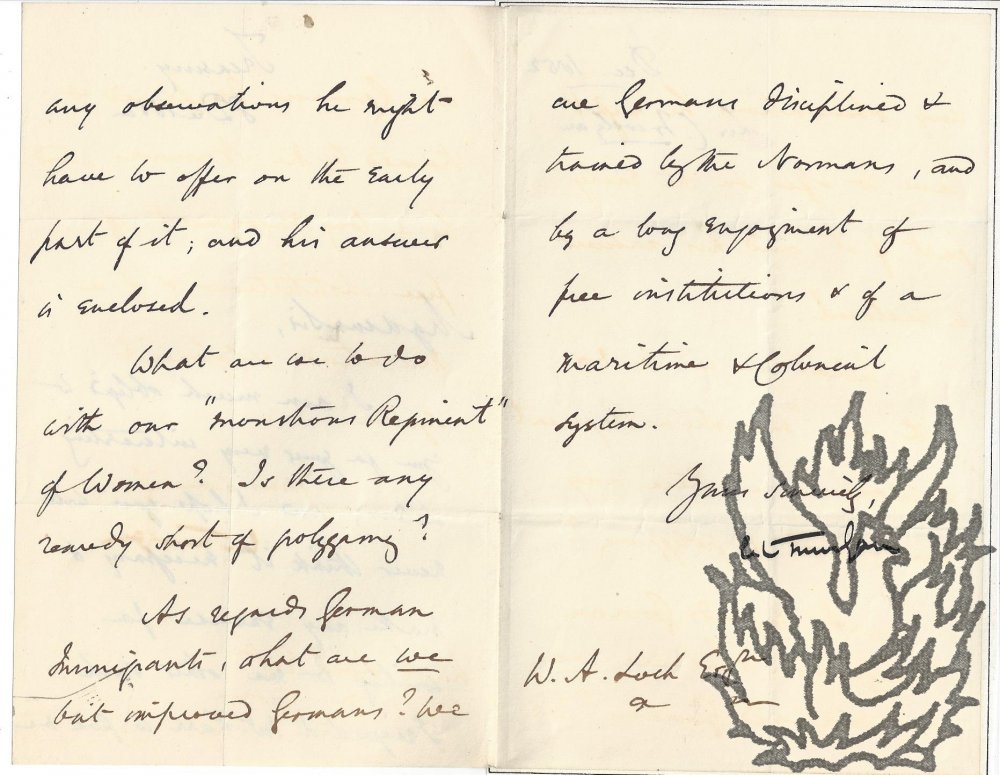 any observations he might
have to offer on the Early
part of it; and his answer
is enclosed.
What are we to do
with our "monstrous Regiment"
of Women? Is there any
remedy short of polygamy?
As regards German
Immigrants, what are we
but improved Germans? We
are Germans disciplined &
trained by the Normans, and
by a long enjoyment of
free institutions & of a
Maritime & Colonial
System.
Yours sincerely,
W. A. Loch Esqre